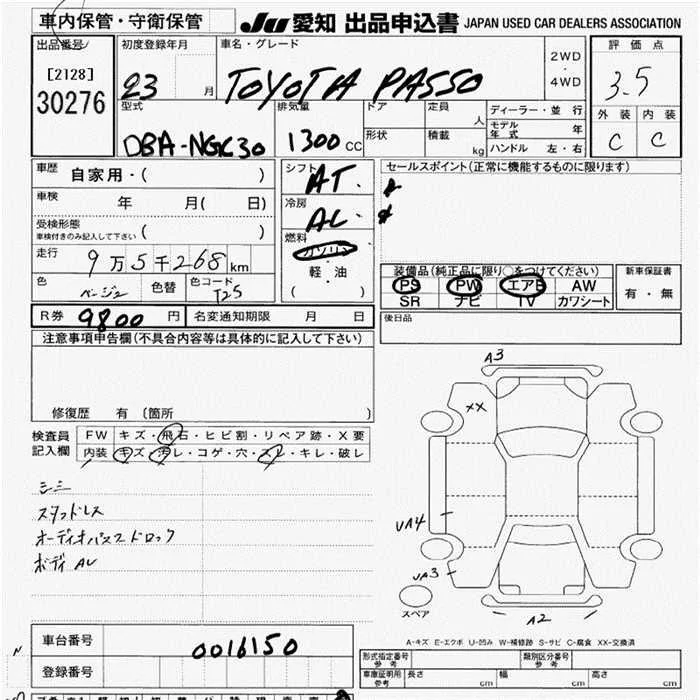 車内保管・守衛保管
JU 愛知 出品申込書 JAPAN USED CAR DEALERS ASSOCIATION
出品番号
[2128]
30276
初度登録年月
23 月
車名・グレード
TOYOTA PASSO
2WD
・
4WD
評価点
3.5
外装 内装
C C
型式
DBA-NGC30
排気量
1300 CC
ドア
定員
人
形状
積載
kg
ディーラー・並行
モデル年式 年
ハンドル 左・右
車歴
自家用・( )
車検
年 月( 日)
受検形態
車検付きのみ記入して下さい ( )
走行
9万5千268km
色
ベージュ
色替
色コード
T25
シフト
AT
冷房
AC
燃料
ガソリン
・
軽・油
( )
セールスポイント(正常に機能するものに限ります)
装備品(純正品に限り○をつけてください)
PS PW エアB AW
SR ナビ TV カワシート
新車保証書
有・無
R券 9800 円
名変通知期限 月 日
後日品
注意事項申告欄(不具合内容等は具体的に記入して下さい)
修復歴 有 〔箇所 〕
検査員
記入欄
FW キズ・飛石・ヒビ割・リペア跡・X要
内装 キズ・汚レ・コゲ・穴・スレ・キレ・破レ
スタッドレス
ボディ AU
A3
XX
UA4
UA3
A2
スペア
A-キズ E-エクボ U-凹み W-補修跡 S-サビ C-腐食 XX-交換済
車台番号
0016150
登録番号
形式指定番号
参考
類別区分番号
参考
車庫証明用
参考
長さ cm 幅 cm 高さ cm